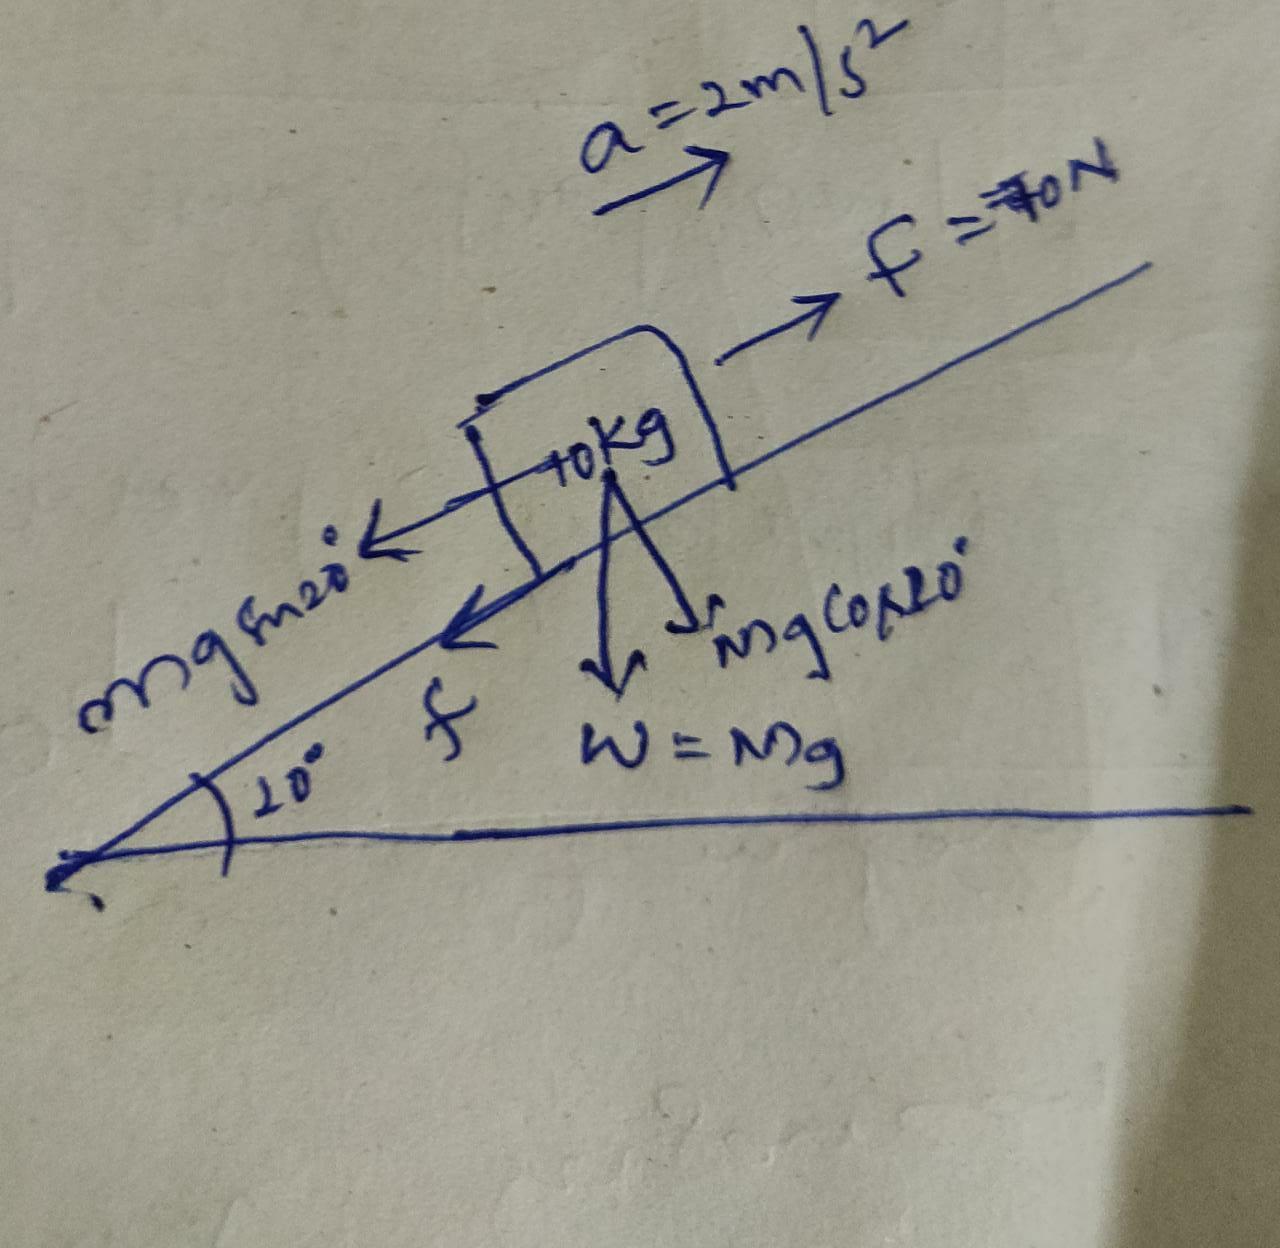 a = 2m/s²
F = 70N
10kg
mg sin20°
mg cos20°
f
W = mg
20°